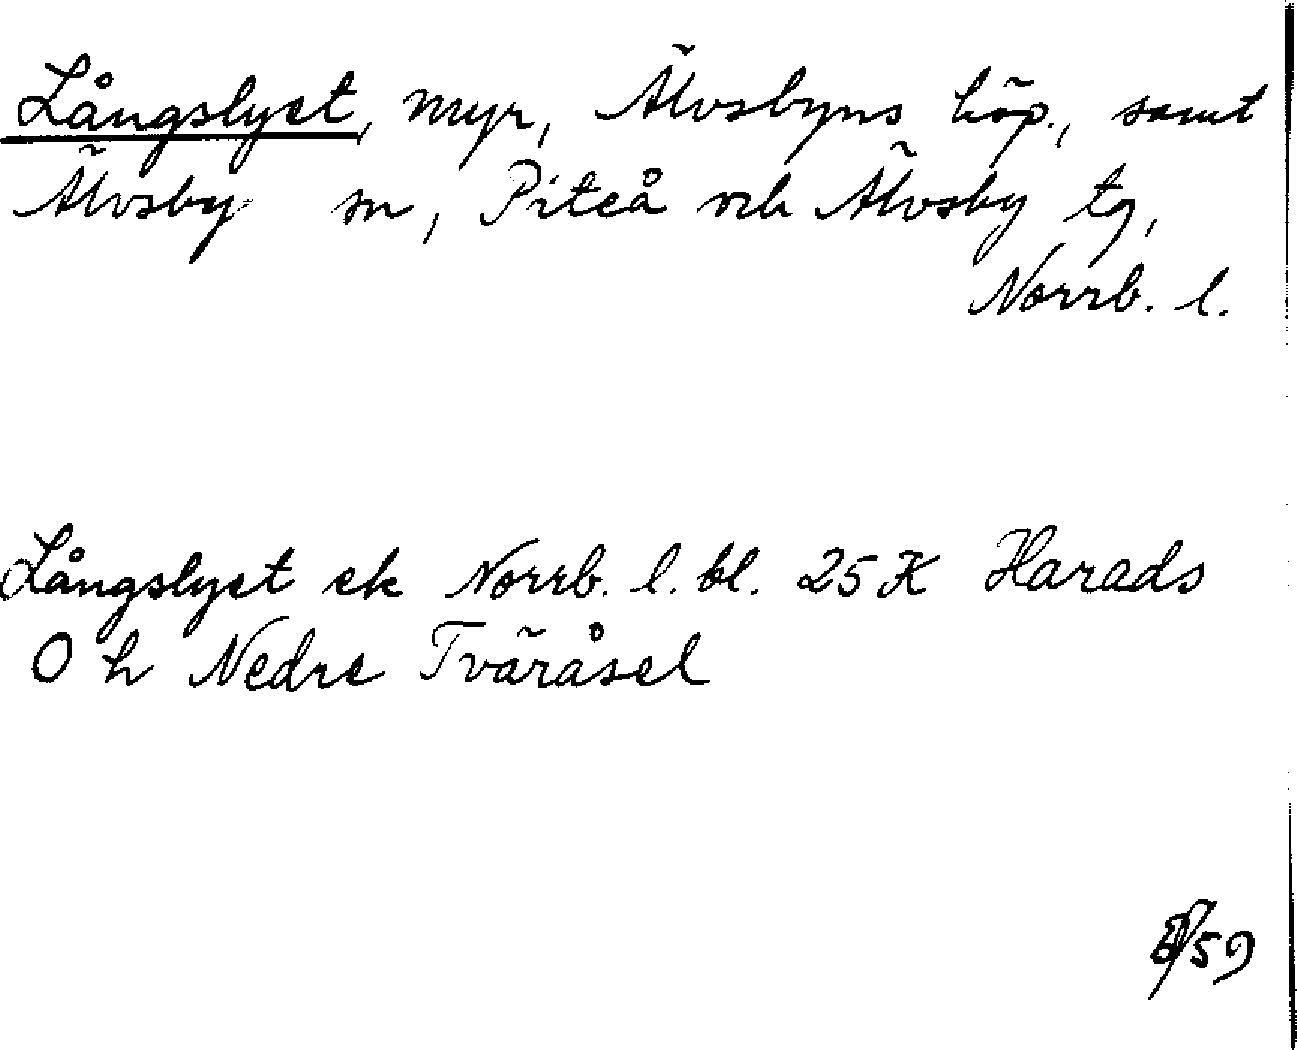 Långslyet, myr, Älvsbyns köp., samt
Älvsby sn, Piteå och Älvsby tg,
Norrb. l.
Långslyet ek Norrb. l. bl. 25 K Harads
O h Nedre Tväråsel
/59